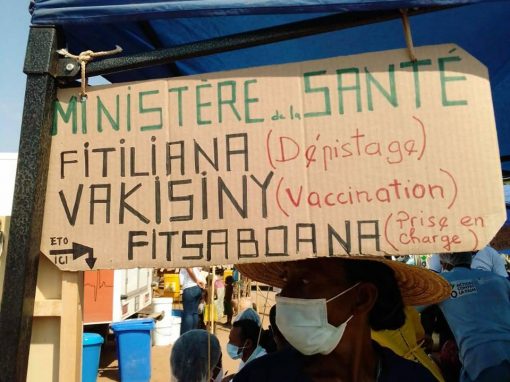 MINISTÈRE de la SANTÉ
FITILIANA (Dépistage)
VAKISINY (Vaccination)
FITSABOANA (Prise en charge)
ETO
ICI